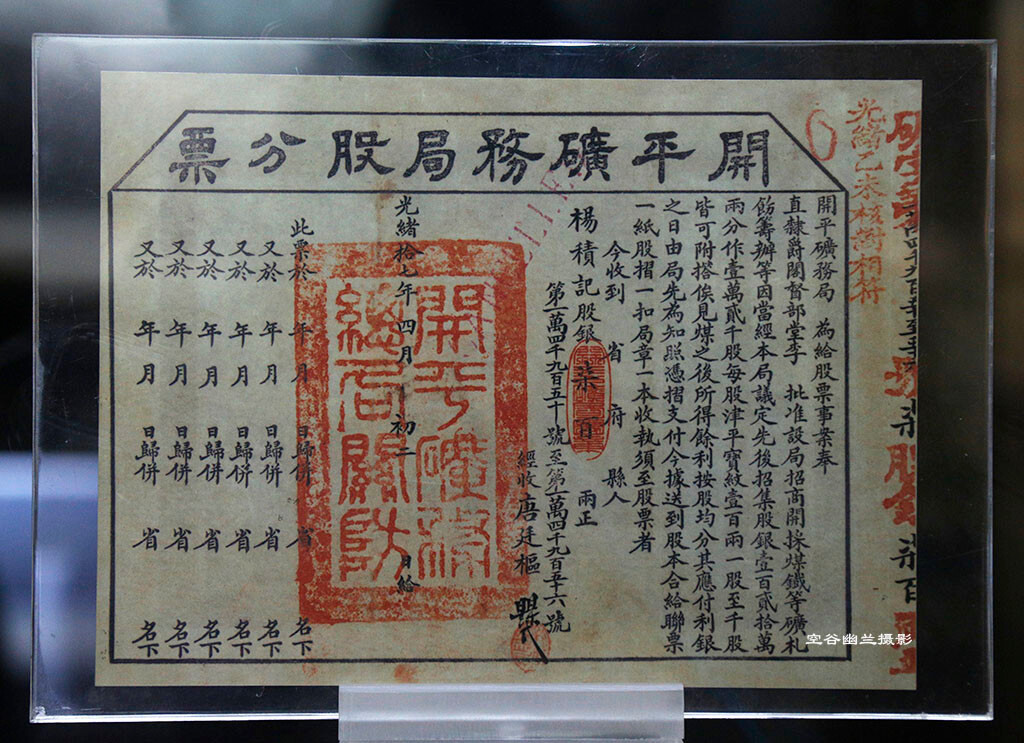 開平礦務局股分票
光緒乙未核對相符
開平礦務局 為給股票事案奉
直隸爵閣督部堂李 批准設局招商開採煤鐵等礦札
飭籌辦等因當經本局議定先後招集股銀壹百貳拾萬
兩分作壹萬貳千股每股津平寶紋壹百兩一股至千股
皆可附搭俟見煤之後所得餘利按股均分其應付利銀
之日由局先為知照憑摺支付今據送到股本合給聯票
一紙股摺一扣局章一本收執須至股票者
今收到 省 府 縣人
楊積記股銀 柒百 兩正
第一萬四千九百五十號至第一萬四千九百五十六號
經收唐廷樞
光緒拾七年四月初二日給
開平礦務
總局關防
此票於 年 月 日歸併 省 名下
又於 年 月 日歸併 省 名下
又於 年 月 日歸併 省 名下
又於 年 月 日歸併 省 名下
又於 年 月 日歸併 省 名下
又於 年 月 日歸併 省 名下
空谷幽兰摄影